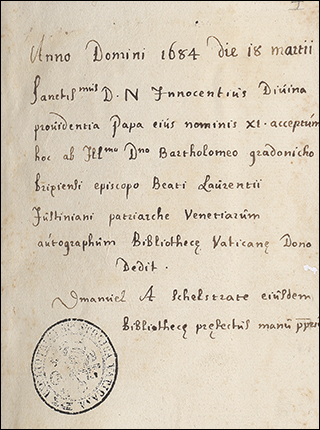 Anno Domini 1684 die 18 martii
Sanctis^mus D. N Innocentius Divina
providentia Papa eius nominis XI. acceptum
hoc ab Ill^mo Dno Bartholomeo gradonicho
brixiensi episcopo Beati Laurentii
Justiniani patriarche Venetiarum
autographum Bibliothecę Vaticanę Dono
Dedit.
Emanuel A Schelstrate eiusdem
Bibliothecę pręfectus manu